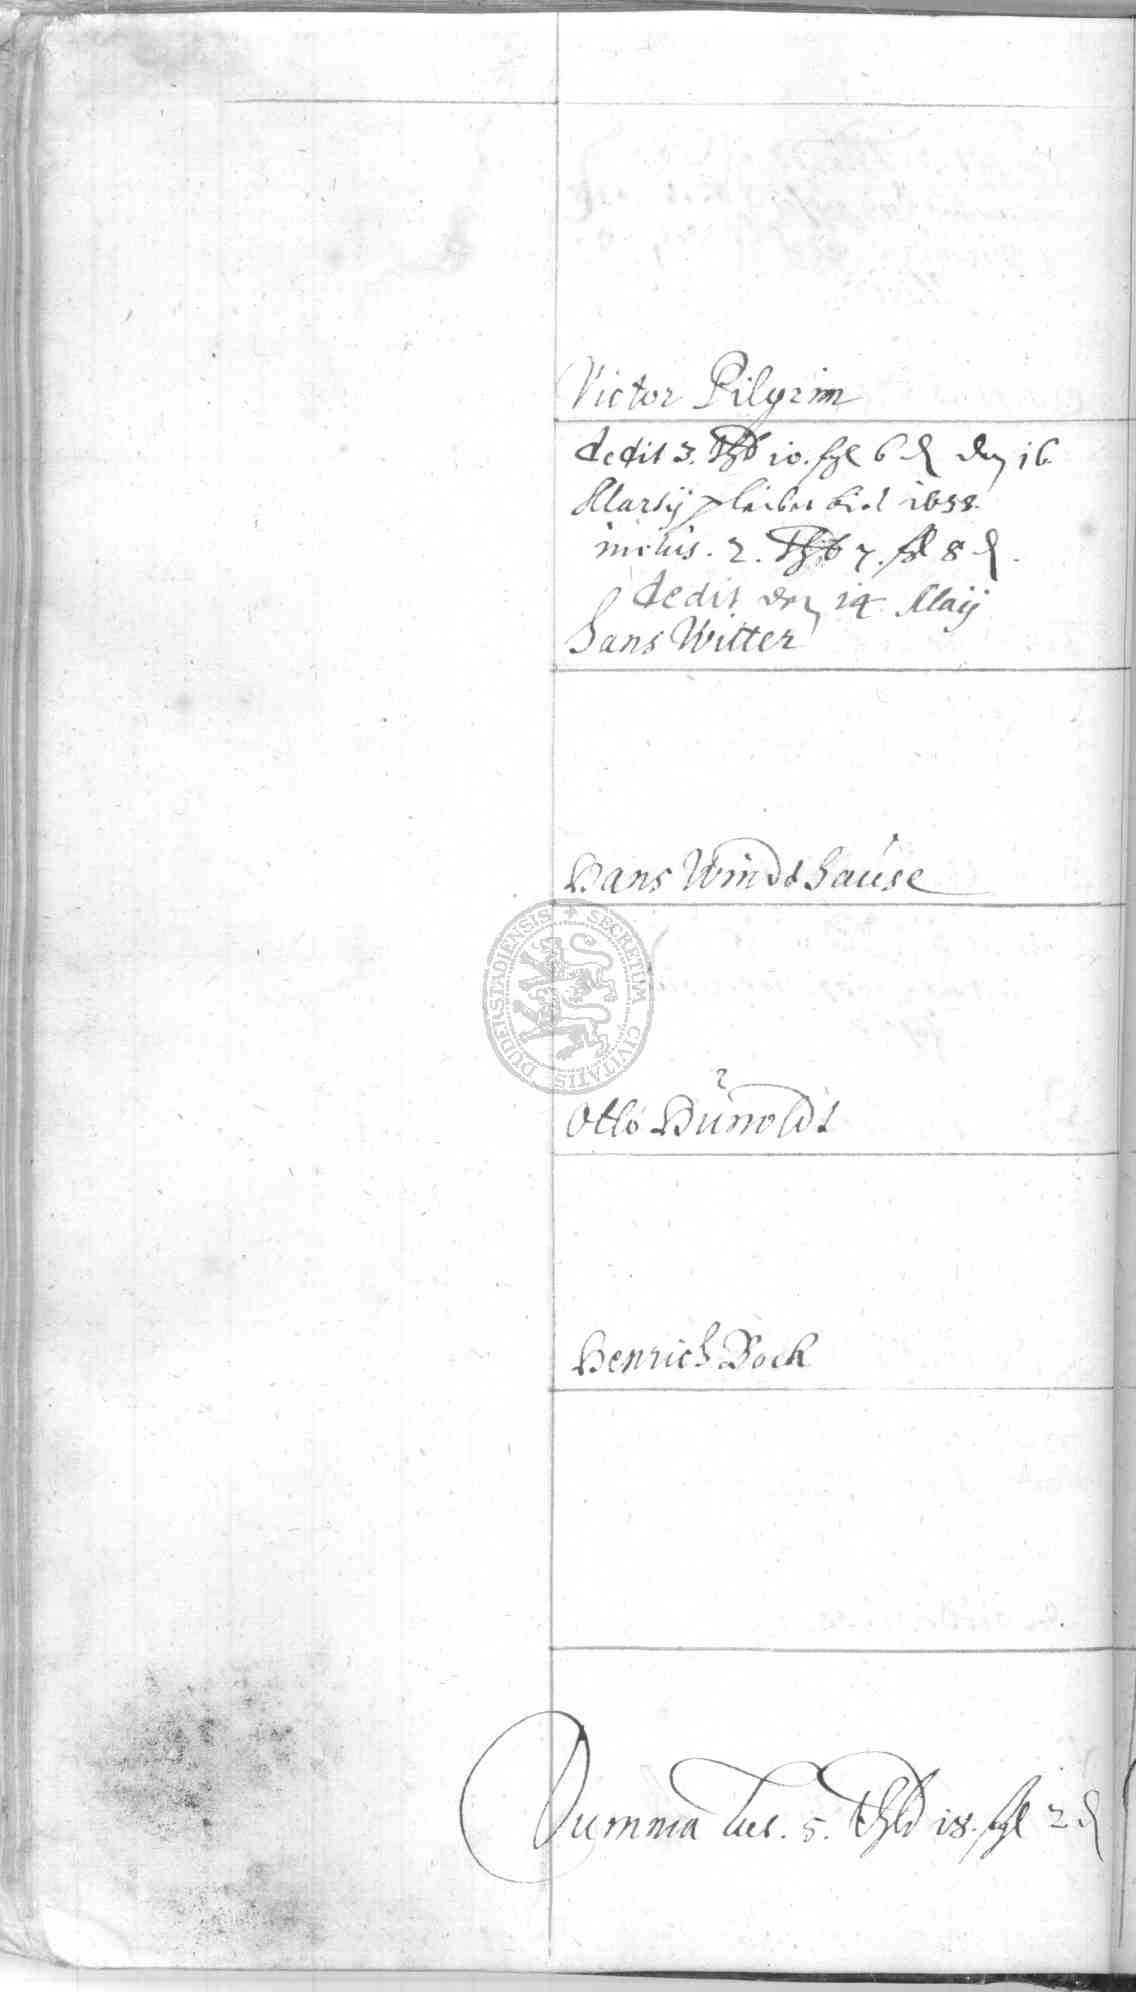 Victor Pilgrim
dedit 3. Thlr 10. ßgl 6 ₰ den 16
Martij bleibet biß 1658
inclus. 2. Thlr 7. ßgl 8 ₰.
dedit den 14 Maij
Hans Witter
Hans Windthause
SECRETUM CIVITATIS DUDERSTADIENSIS
Otto Hunoldt
Henrich Bock
Summa lat. 5. Thlr 18. ßgl 2 ₰